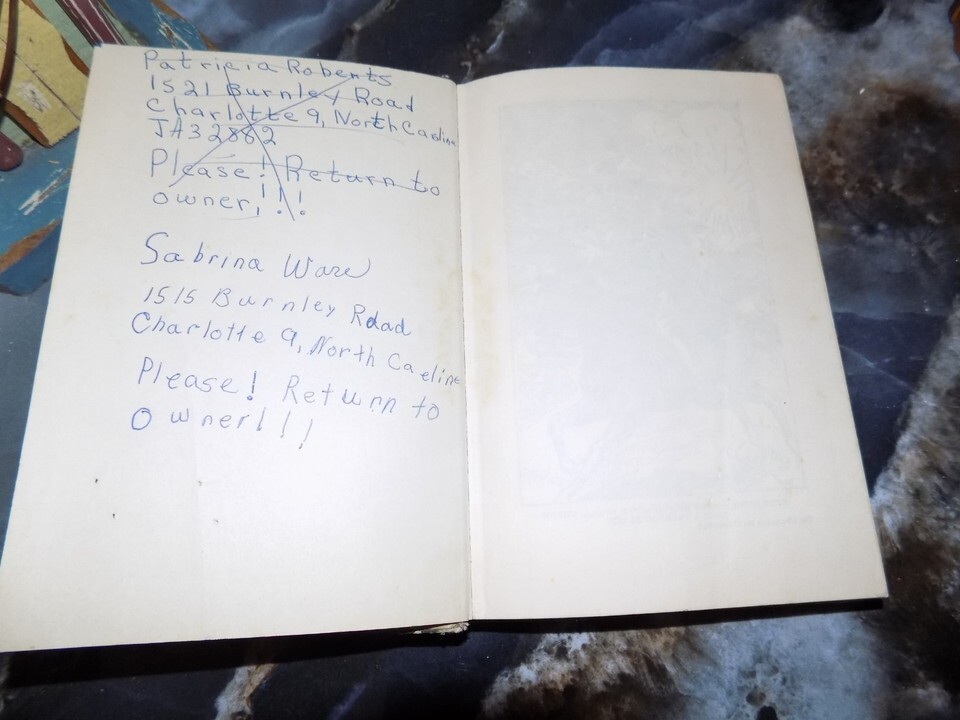 Patricia Roberts
1521 Burnley Road
Charlotte 9, North Caolina
JA32882
Please! Return to
owner,!!!
Sabrina Ware
1515 Burnley Road
Charlotte 9, North Caeline
Please! Return to
Owner!!!